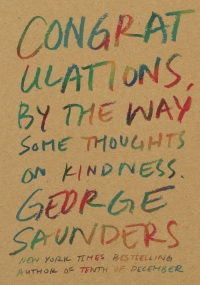 CONGRAT
ULATIONS,
BY THE WAY
SOME THOUGHTS
ON KINDNESS.
GEORGE
SAUNDERS
NEW YORK TIMES BESTSELLING
AUTHOR OF TENTH OF DECEMBER